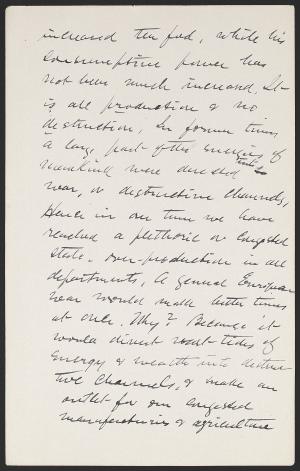 increased ten fold, while his
consumptive power has
not been much increased. It
is all production & no
destruction. In former times
a large part of the energies of
mankind were directed into
war, or destructive channels,
Hence in our time we have
reached a plethoric or congested
state. Over-production in all
departments. A general European
war would make better times
at once. Why? Because it
would divert vast tides of
energy & wealth into destruc-
tive channels, & make an
outlet for our congested
manufactories & agriculture